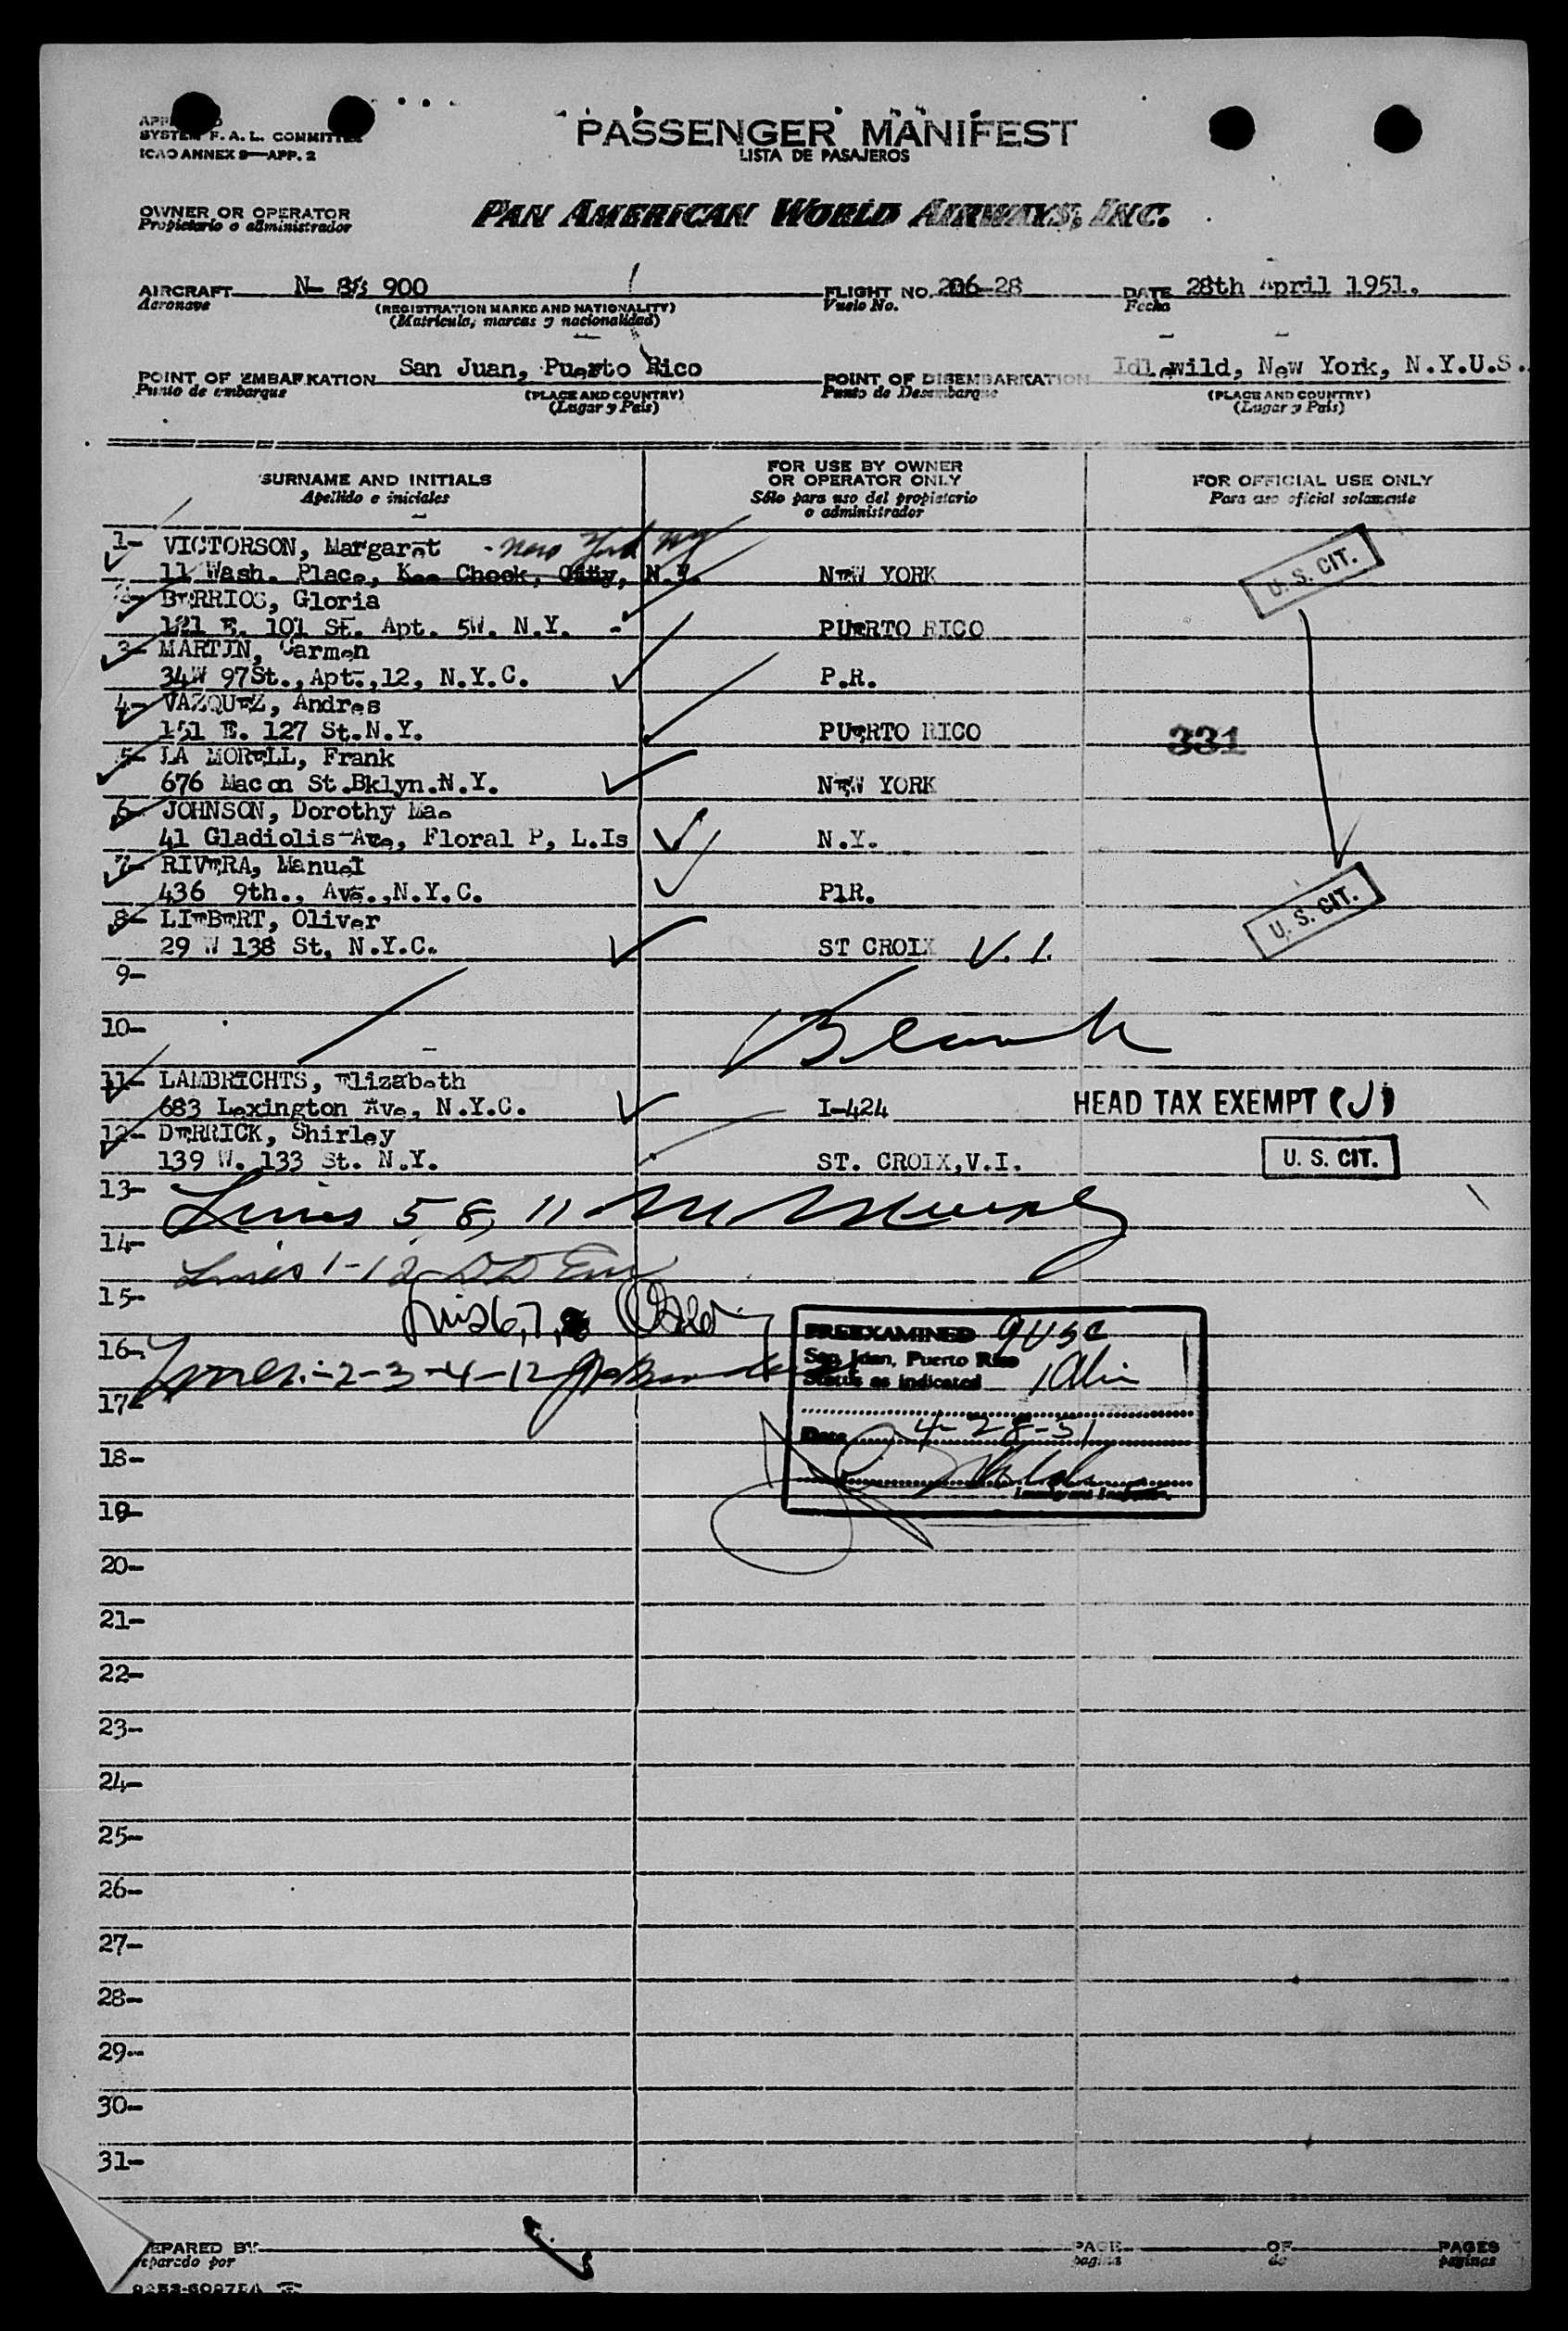 SYSTEM F. A. L. COMMITTEE
ICAO ANNEX 9—APP. 2
PASSENGER MANIFEST
LISTA DE PASAJEROS
OWNER OR OPERATOR
Propietario o administrador
PAN AMERICAN WORLD AIRWAYS, INC.
AIRCRAFT N- 900
Aeronave
(REGISTRATION MARKS AND NATIONALITY)
(Matrícula, marcas y nacionalidad)
FLIGHT NO. 206-28
Vuelo No.
DATE 28th April 1951.
Fecha
POINT OF EMBARKATION San Juan, Puerto Rico
Punto de embarque
(PLACE AND COUNTRY)
(Lugar y País)
POINT OF DISEMBARKATION Idlewild, New York, N.Y.U.S.
Punto de Desembarque
(PLACE AND COUNTRY)
(Lugar y País)
SURNAME AND INITIALS
Apellido e iniciales
FOR USE BY OWNER
OR OPERATOR ONLY
Sólo para uso del propietario
o administrador
FOR OFFICIAL USE ONLY
Para uso oficial solamente
1- VICTORSON, Margaret - New York NY
11 Wash. Place, Kee Cheek, City, N.Y. NEW YORK
U. S. CIT.
2- BERRIOS, Gloria
121 E. 101 St. Apt. 5W. N.Y. - PUERTO RICO
3- MARTIN, Carmen
34W 97St.,Apt.,12, N.Y.C. P.R.
4- VAZQUEZ, Andres
151 E. 127 St.N.Y. PUERTO RICO
331
5- LA MORELL, Frank
676 Macon St.Bklyn.N.Y. NEW YORK
6- JOHNSON, Dorothy Mae
41 Gladiolis-Ave, Floral P, L.Is N.Y.
7- RIVERA, Manuel
436 9th., Ave.,N.Y.C. P1R.
8- LIEBERT, Oliver
29 W 138 St, N.Y.C. ST CROIX V. I.
U. S. CIT.
9-
10- Blank
11- LAMBRICHTS, Elizabeth
683 Lexington Ave, N.Y.C. I-424 HEAD TAX EXEMPT (J)
12- DERRICK, Shirley
139 W. 133 St. N.Y. ST. CROIX,V.I. U. S. CIT.
13- Lines 5 8, 11
14- Lines 1-12
15-
16- Lines:-2-3-4-12
17-
PREEXAMINED 9 USC
San Juan, Puerto Rico
Status as indicated 1 Alien
Date 4-28-51
Immigrant Inspector.
18-
19-
20-
21-
22-
23-
24-
25-
26-
27-
28-
29-
30-
31-
PREPARED BY
Preparado por
PAGE OF PAGES
pagina de paginas